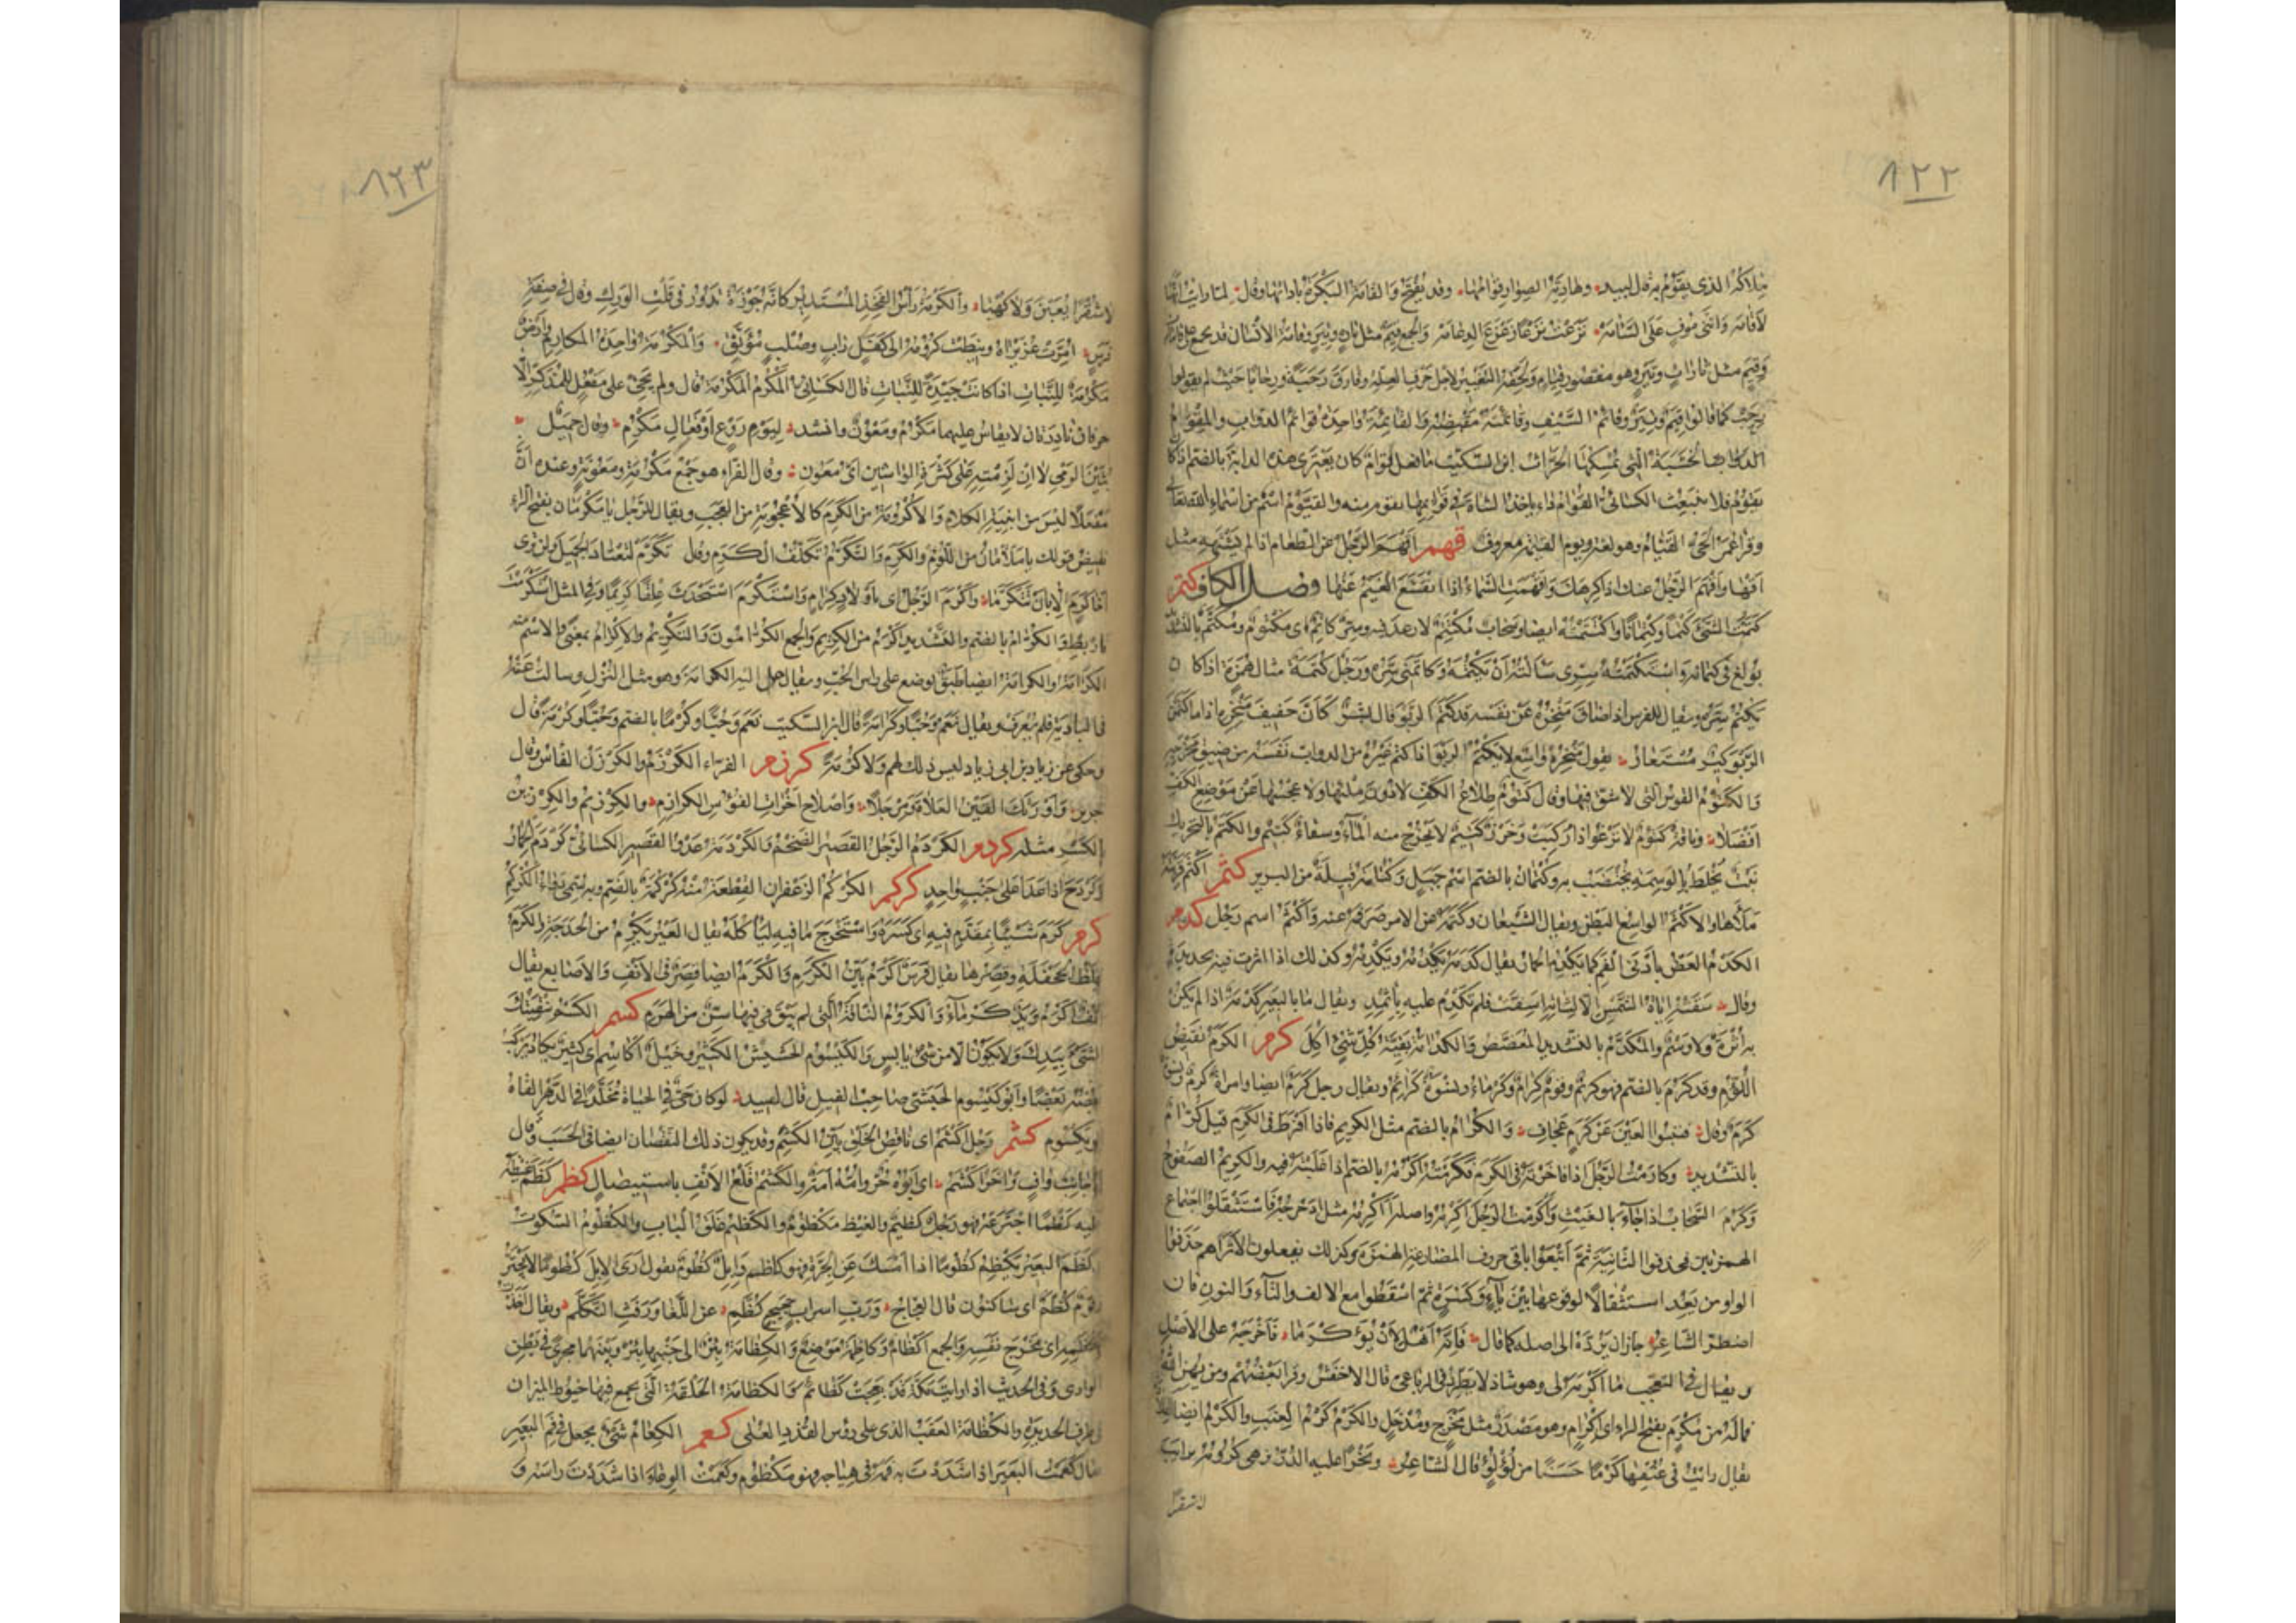 ٨٢٢
ملاكه الذي يقوم به قال لبيد وهادية الصوار قوامها وقد يفتح والقامة البكرة باداتها وقال لما رايت انها
لا قامه وانني موف على السآمه نزعت نزعا زعزع الدعامه والجمع قيم مثل تارة وتير وقامة الانسان قد يجمع على قامات
وقيم مثل تارات وتير وهو مقصور قيام ولحقه التغيير لاجل حرف العلة وفارق رحبة ورحابا حيث لم يقولوا
رحب كما قالوا قيم وتير وقائم السيف وقائمته مقبضه والقائمة واحدة قوائم الدواب والمقوم
الخشبة التي يمسكها الحراث ابن السكيت ما فعل قوام كان يعتري هذه الدابة بالضم اذا كان
يقوم فلا ينبعث الكسائي القوام داء ياخذ الشاة في قوائمها تقوم منه والقيوم اسم من اسماء الله تعالى
وقرا عمر الحي القيام وهو لغة ويوم القيمة معروف قهم اقهم الرجل عن الطعام اذا لم يشتهه مثل
اقهى واقهم الرجل عنك اذا كرهك واقهمت السماء اذا انقشع الغيم عنها فصل الكاف كتم
كتمت الشئ كتما وكتمانا واكتتمته ايضا وسحاب مكتتم لا رعد فيه وسر كاتم اى مكتوم ومكتم بالتشديد
بولغ في كتمانه واستكتمته سرى سالته ان يكتمه وكاتمني سره ورجل كتمة مثال همزة اذا كان
يكتم سره ويقال للفرس اذا ضاق منخره عن نفسه قد كتم الربو قال بشر كان حفيف منخره اذا ما كتمن
الربو كير مستعار يقول منخره واسع لا يكتم الربو اذا كتم غيره من الدواب نفسه من ضيق مخرجه
والكتوم القوس التي لا شق فيها وقال كتوم طلاع الكف لا دون ملئها ولا عجسها عن موضع الكف
افضلا وناقة كتوم لا ترغوا اذا ركبت وخرز كتيم لا يخرج منه الماء وسقاء كتيم والكتم بالتحريك
نبت يخلط بالوسمة يختضب به وكتمان بالضم اسم جبل وكتامة قبيلة من البربر كثم اكثم قربته
ملأها والاكثم الواسع البطن ويقال الشبعان وكثمه عن الامر صرفه عنه واكثم اسم رجل كدم
الكدم العض بادنى الفم كما يكدم الحمار يقال كدمه يكدمه ويكدمه وكذلك اذا اثرت فيه بحديدة
وقال سقته اياة الشمس الا لثاته اسف فلم تكدم عليه باثمد ويقال ما بالبعير كدمة اذا لم يكن
به اثرة ولا وسم والمكدم بالتشديد المعضض والكدامة بقية كل شئ اكل كرم الكرم نقيض
اللؤم وقد كرم بالضم فهو كريم وقوم كرام وكرماء ونسوة كرائم ويقال رجل كرم ايضا وامراة كرم ونسوة
كرم وقال فتنبوا العين عن كرم عجاف والكرام بالضم مثل الكريم فاذا افرط في الكرم قيل كرام
بالتشديد وكارمت الرجل اذا فاخرته في الكرم فكرمته اكرمه بالضم اذا غلبته فيه والكريم الصفوح
وكرم السحاب اذا جاء بالغيث واكرمت الرجل اكرمه واصله أأكرمه مثل ادحرجه فاستثقلوا اجتماع
الهمزتين فحذفوا الثانية ثم اتبعوا باقى حروف المضارعة الهمزة وكذلك يفعلون الا تراهم حذفوا
الواو من يعد استثقالا لوقوعها بين ياء وكسرة ثم اسقطوا مع الالف والتاء والنون فان
اضطر الشاعر جاز ان يرده الى اصله كما قال فانه اهل لان يؤكرما فاخرجه على الاصل
ويقال في التعجب ما اكرمه لى وهو شاذ لا يطرد في الرباعى قال الاخفش وقرا بعضهم ومن يهن الله
فما له من مكرم بفتح الراء اى اكرام وهو مصدر مثل مخرج ومدخل والكرم كرم العنب والكرم ايضا القلادة
يقال رايت في عنقها كرما حسنا من لؤلؤ قال الشاعر ونحرا عليه الدر تزهى كرومه ترائب
لا شقرا
٨٢٣
لا شقرا يعبن ولا كهبا والكرمة رأس الفخذ المستدير كانه جوزة تدور في قلت الورك وقال في صفة
فرس امرت عزيزاه ونيطت كرومه الى كفل راب وصلب موثق والمكرمة واحدة المكارم وارض
مكرمة للنبات اذا كانت جيدة للنبات قال الكسائى المكرم المكرمة قال ولم يجئ على مفعل للمذكر الا
حرفان نادران لا يقاس عليهما مكرم ومعون وانشد ليوم روع او فعال مكرم وقال جميل
بثين الزمي لا ان لا ان لزمته على كثرة الواشين اى معون وقال الفراء هو جمع مكرمة ومعونة وعنده ان
مفعلا ليس من ابنية الكلام والاكرومة من الكرم كالاعجوبة من العجب ويقال للرجل يا مكرمان بفتح الراء
نقيض قولك يا ملأمان من اللؤم والكرم والتكرم تكلف الكرم وقال تكرم لتعتاد الجميل ولن ترى
اخا كرم الا بان يتكرما واكرم الرجل اى باولاد كرام واستكرم استحدث علقا كريما وفي المثل استكرمت
فاربط والكرام بالضم والتشديد اكرم من الكريم والجمع الكرامون والتكريم والاكرام بمعنى والاسم منه
الكرامة والكرامة ايضا طبق يوضع على راس الحب ويقال حمل اليه الكرامة وهو مثل النزل وسالت عنه
في البادية فلم يعرف ويقال نعم وحبا وكرامة قال ابن السكيت نعم وحبا وكرما بالضم وحبا وكرمة قال
وحكى عن زياد بن ابى زياد ليس ذلك لهم ولا كرمة كرزم الفراء الكرزم والكرزن الفأس وقال
جرير واورثك القين العلاة ومرجلا واصلاح اخرات الفؤوس الكرازم والكرزيم والكرزين
الكسر مثله كردم الكردم الرجل القصير الضخم والكردمة عدو القصير الكسائى كردم الحمار
وكردح اذا عدا على جنب واحد كركم الكركم الزعفران القطعة منه كركمة بالضم وبه سمى دواء الكركم
كزم كزم شيئا بمقدم فيه اى كسره واستخرج ما فيه لياكله يقال العير يكزم من الحدجة والكزم
غلظ الجحفلة وقصرها يقال فرس اكزم بين الكزم والكزم ايضا قصر في الانف والاصابع يقال
انف اكزم ويد كزماء والكزوم الناقة التي لم يبق في فيها سن من الهرم كسم الكسم تفتيتك
الشئ بيدك ولا يكون الا من شئ يابس والكيسوم الحشيش الكثير وخيل اكاسم اى كثيرة يكاد يركب
بعضه بعضا وابو يكسوم الحبشى صاحب الفيل قال لبيد لو كان حى في الحياة مخلدا في الدهر الفاه
ابو يكسوم كشم رجل اكشم اى ناقص الخلق بين الكشم وقد يكون ذلك النقصان ايضا في الحسب وقال
له جانب واف واخر اكشم اى ابوه حر وامه امة والكشم قطع الانف باستيصال كظم كظم غيظه
عليه كظما اجترعه فهو رجل كظيم والغيظ مكظوم والكظم غلق الباب والكظوم السكوت
وكظم البعير يكظم كظوما اذا امسك عن الجرة فهو كاظم وابل كظوم يقول ارى الابل كظوما لا تجتر
وقوم كظم اى ساكتون قال العجاج ورب اسراب حجيج كظم عن اللغا ورفث التكلم ويقال اخذت
بكظمه اى مخرج نفسه والجمع اكظام وكاظمة موضع والكظامة بئر الى جنبها بئر وبينهما مجرى في بطن
الوادى وفى الحديث اذا رايت مكة قد بعجت كظائم والكظامة الحلقة التي يجمع فيها خيوط الميزان
في طرف الحديدة والكظامة العقب الذى على رؤس القذذ العليا كعم الكعام شئ يجعل في فم البعير
يقال كعمت البعير اذا شددت به فمه في هياجه فهو مكعوم وكعمت الوعاء اذا شددت راسه و